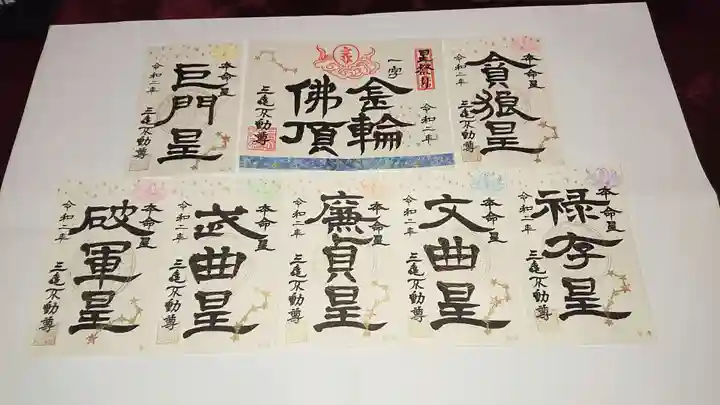 本命星
貪狼星
令和二年
三亀不動尊
星祭り
一字
金輪
佛頂
令和二年
三亀不動尊
本命星
巨門星
令和二年
三亀不動尊
本命星
禄存星
令和二年
三亀不動尊
本命星
文曲星
令和二年
三亀不動尊
本命星
廉貞星
令和二年
三亀不動尊
本命星
武曲星
令和二年
三亀不動尊
本命星
破軍星
令和二年
三亀不動尊